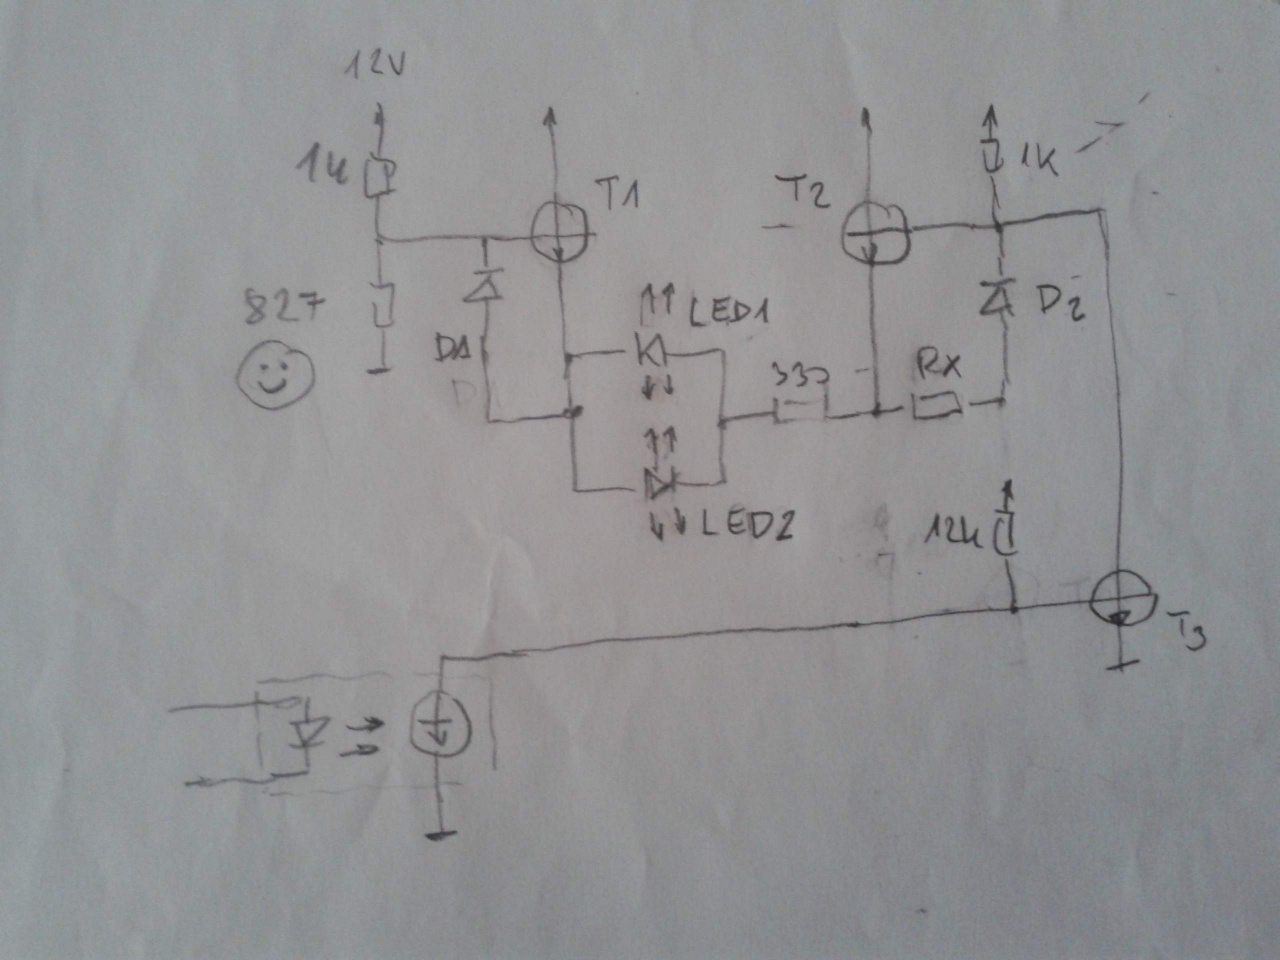 12V
1k
T1
T2
1K
827
LED1
D2
D1
330
RX
LED2
12k
T3